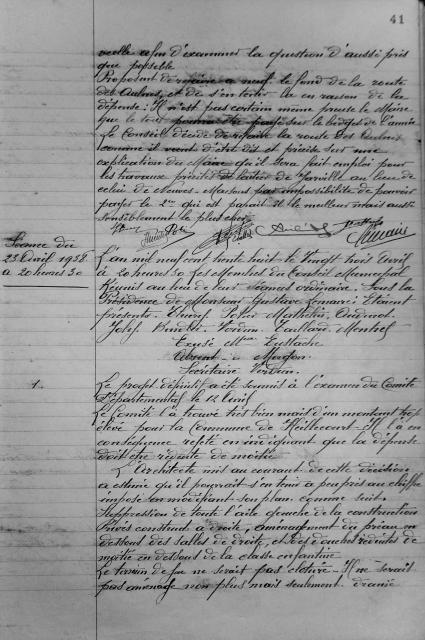 41
velle afin d'examiner la question d'aussi près
que possible
Proposant de refaire à neuf le fond de la route
des et de s'en tenir là en raison de la
dépense: Il n'est pas certain même presse le Maire
que le tout pourra être payé sur le budget de l'année
Le Conseil décide de refaire la route des
comme il vient d'être dit et précise sur une
explication du Maire qu'il sera fait emploi pour
les travaux précités de laitier de Jarville au lieu de
celui de Neuves-Maisons par impossibilité de pouvoir
payer le 2me qui est paraît il le meilleur mais aussi
sensiblement le plus cher
Séance du
23 Avril 1938
à 20 heures 30
L'an mil neuf cent trente huit le Vingt trois Avril
à 20 heures 30 Les Membres du Conseil Municipal
Réunis au lieu de leur séances ordinaire. Sous la
Présidence de Monsieur Gustave Lemaire: Etaient
présents. Peter Mathieu,
Joseph Verdun. Gaillard
Excusé Mr Eustache
Absent
Secrétaire Verdun.
1.
Le projet définitif a été soumis à l'examen du Comité
Départemental le 12 Avril
Le Comité l'a trouvé très bien mais d'un montant trop
élevé pour la Commune de Heillecourt. Il l'a en
conséquence rejeté en indiquant que la dépense
doit être réduite de moitié
L'Architecte mis au courant de cette décision
a estimé qu'il pourrait s'en tenir à peu près au chiffre
imposé en modifiant son plan comme suit.
Suppression de toute l'aile gauche de la construction
Privés construit à droite, aménagement du préau en
dessous des salles de droite, et des douches réduites de
moitié en dessous de la classe enfantine
Le terrain de jeu ne serait pas cloturé - Il ne serait
pas aménagé non plus mais seulement drainé